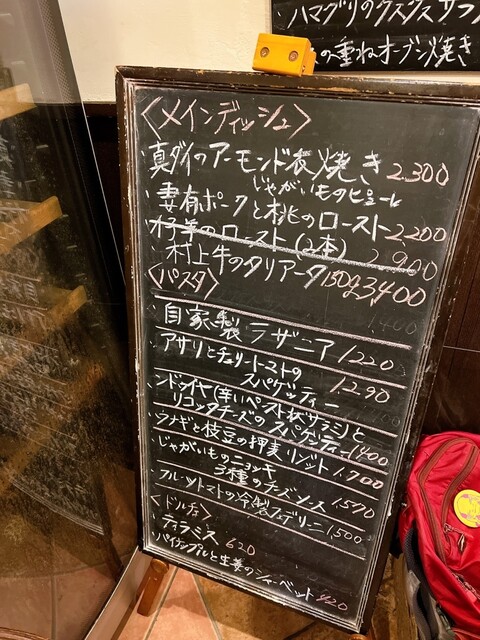 ハマグリのクスクス サフラ
の重ねオーブン焼き
〈メインディッシュ〉
真ダイのアーモンド衣焼き 2,300
じゃがいものピューレ
・妻有ポークと桃のロースト 2,200
仔羊のロースト(2本) 2,900
村上牛のタリアータ 150g 3,400
〈パスタ〉
自家製ラザニア 1,220
・アサリとチェリートマトの
スパゲッティー 1,290
・ンドゥイヤ(辛いペースト状サラミ)と
リコッタチーズのスパゲッティー 1,400
・ウナギと枝豆の押麦リゾット 1,700
・じゃがいものニョッキ
3種のチーズソース 1,570
・フルーツトマトの冷製フェデリーニ 1,500
〈ドルチェ〉
ティラミス 620
・パイナップルと生姜のシャーベット 420